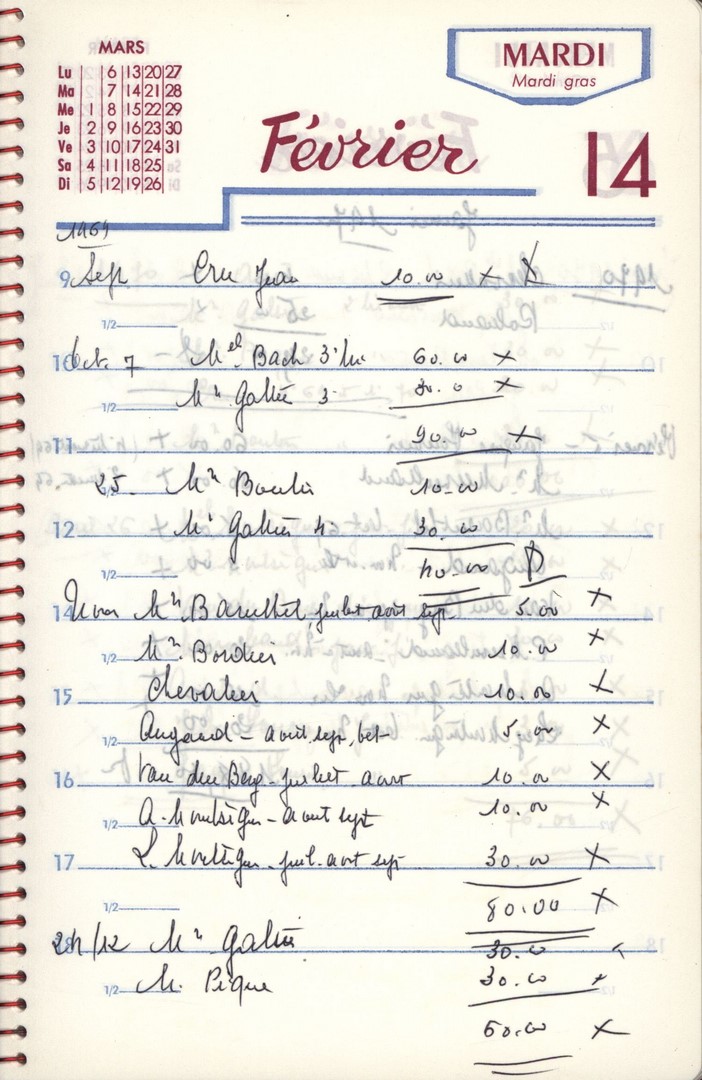 MARS
Lu 6 13 20 27
Ma 7 14 21 28
Me 1 8 15 22 29
Je 2 9 16 23 30
Ve 3 10 17 24 31
Sa 4 11 18 25
Di 5 12 19 26
MARDI
Mardi gras
Février 14
1969
9 Sep Cru Jean 10.00 X
1/2
10 Oct. 7 Mel Bach 60.00 X
1/2 Mr Galtié 3 30.0 X
11 90.00 X
25. Mr Boutin 10.00
12 Mr Galtié 4 30.00
1/2 40.00
14 Mr juillet aout sept. 5.00 X
1/2 Mr. Bordier 10.00 X
15 Chevalier 10.00 X
1/2 Augaud - aout, sept, oct 5.00 X
16 Van den Berg - juillet - aout 10.00 X
1/2 A. - aout sept 10.00 X
17 L. - juil. aout sept 30.00 X
1/2 80.00 X
18 24/12 Mr Galtié 30.00
1/2 M. Pique 30.00 X
60.00 X